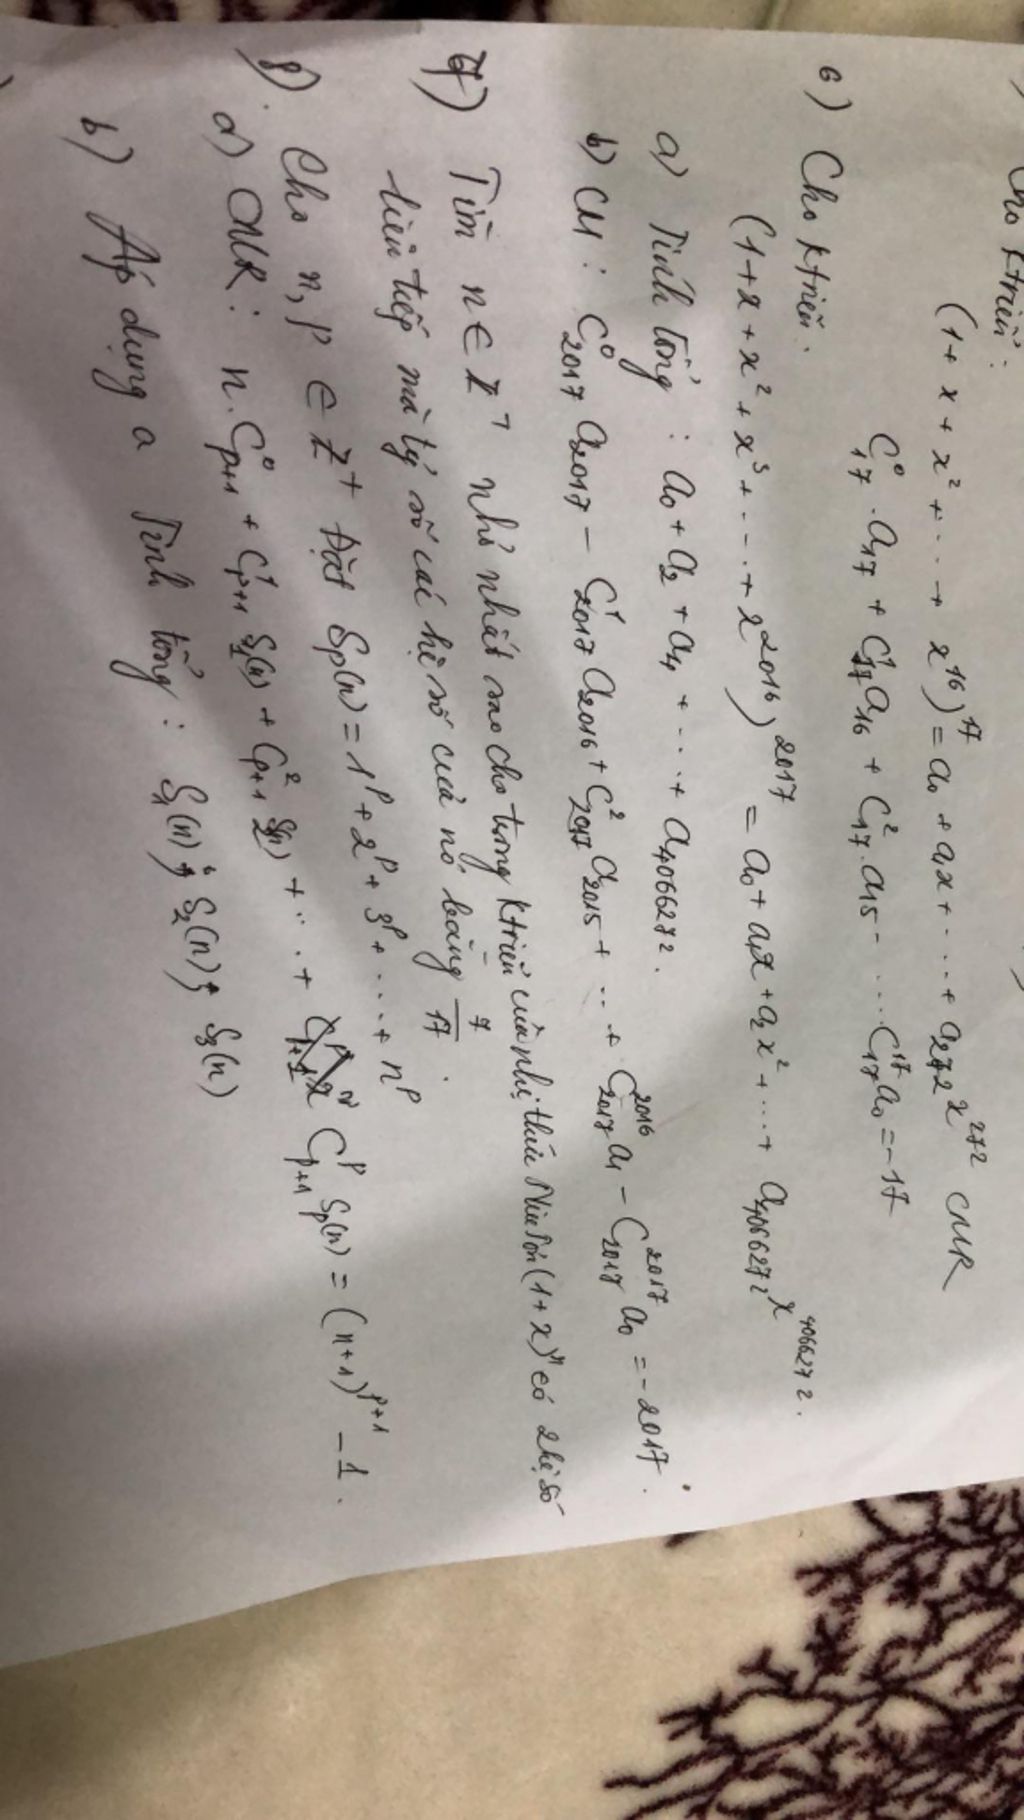 Cho ktriển :
(1 + x + x² + ... + x¹⁶)¹⁷ = a₀ + a₁x + ... + a₂₇₂ x²⁷² CMR
C⁰₁₇ . a₁₇ + C¹₁₇ a₁₆ + C²₁₇ . a₁₅ - .... C¹⁷₁₇ a₀ = -17
6) Cho ktriển .
(1 + x + x² + x³ + ... + x²⁰¹⁶)²⁰¹⁷ = a₀ + a₁x + a₂x² + ... + a₄₀₆₆₂₇₂ x⁴⁰⁶⁶²⁷² .
a) Tính tổng : a₀ + a₂ + a₄ + ... + a₄₀₆₆₂₇₂ .
b) CM : C⁰₂₀₁₇ a₂₀₁₇ - C¹₂₀₁₇ a₂₀₁₆ + C²₂₀₁₇ a₂₀₁₅ + ... + C²⁰¹⁶₂₀₁₇ a₁ - C²⁰¹⁷₂₀₁₇ a₀ = -2017 .
7) Tìm n ∈ Z⁺ nhỏ nhất sao cho trong ktriển của nhị thức Niutơn (1+x)ⁿ có 2 hệ số
liên tiếp mà tỷ số các hệ số của nó bằng 7/17 .
8) Cho n, p ∈ Z⁺ Đặt Sp(n) = 1ᵖ + 2ᵖ + 3ᵖ + .... + nᵖ
a) CMR : n . C⁰ₚ₊₁ + C¹ₚ₊₁ S₁(n) + C²ₚ₊₁ S₂(n) + ... + Cᵖₚ₊₁ Sp(n) = (n+1)ᵖ⁺¹ - 1 .
b) Áp dụng a Tính tổng : S₁(n) ; S₂(n) ; S₃(n)